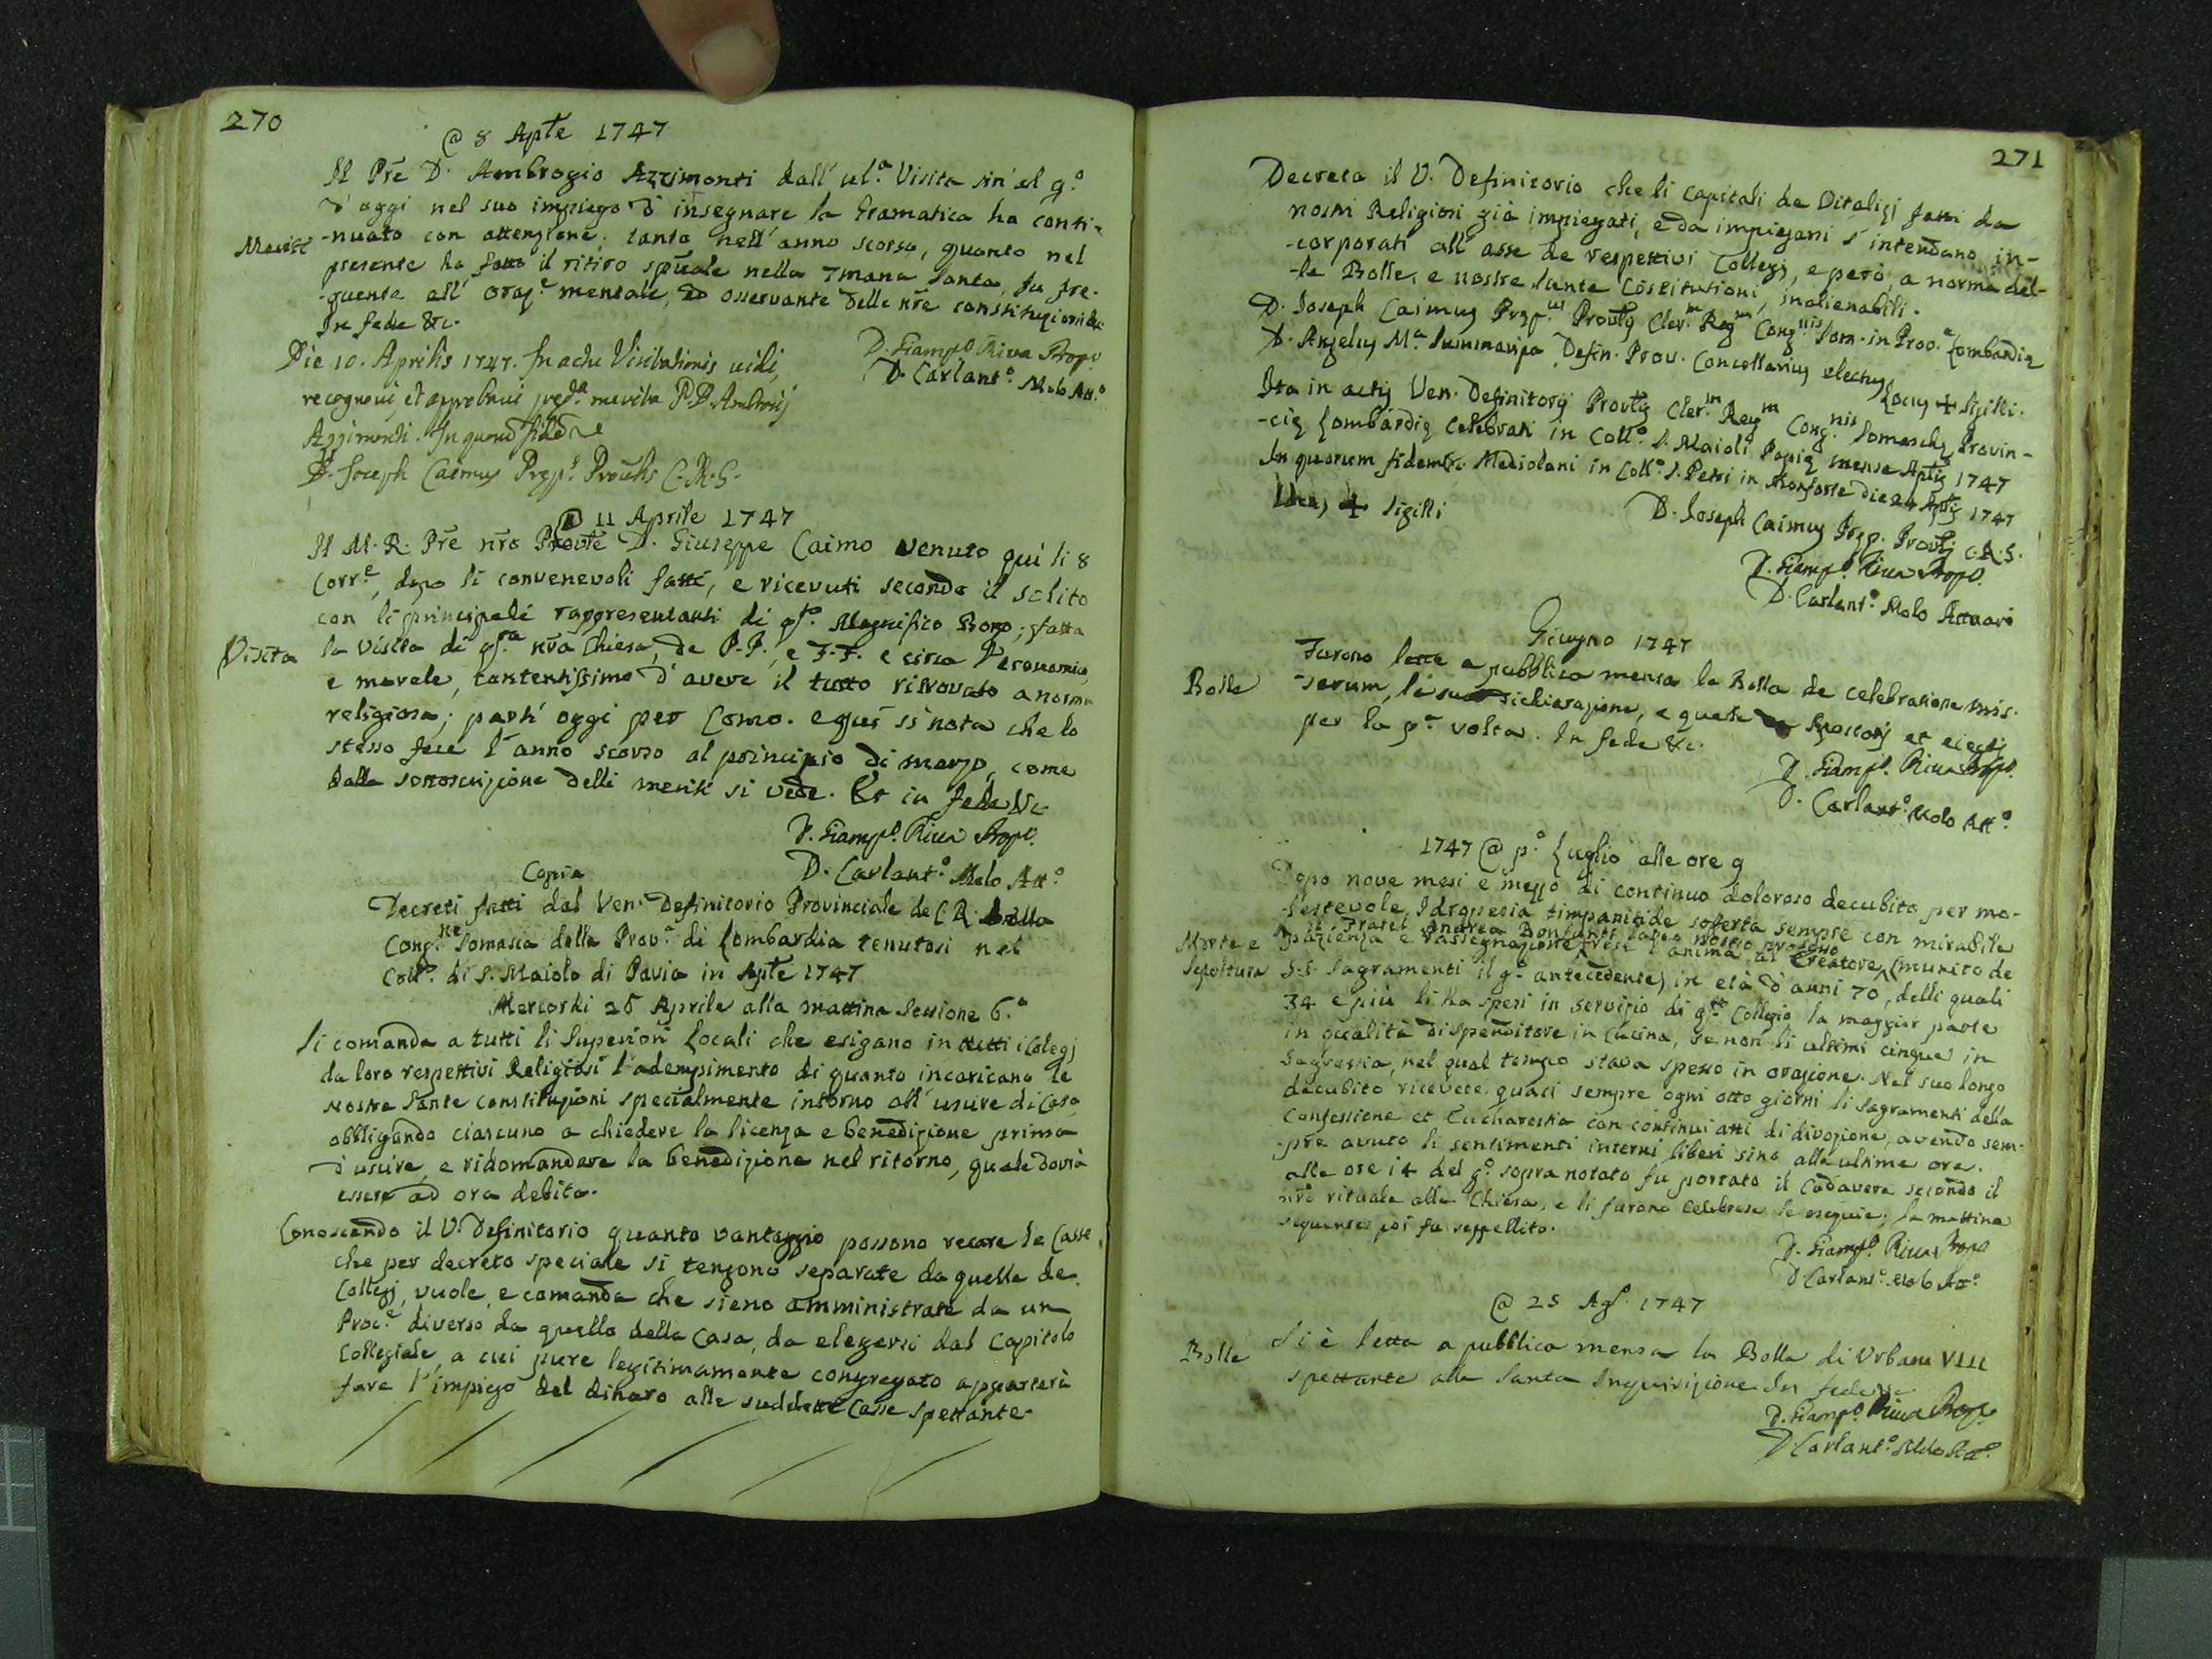 270
@ 8 Aprle 1747
Il Prē D. Ambrogio Azzimonti dall' ul.ª Visita sin' al g.º
d' oggi nel suo impiego d' insegnare la Gramatica ha conti-
Meriti
-nuato con attenzione; tanto nell' anno scorso, quanto nel
presente ha fatto il ritiro spūale nella 7mana Santa, fu fre-
-quente all' oraz.e mentale, ed osservante delle nrē constituzioni &c.
In fede &c.
D. Giamp.º Riva Prep.º
D. Carlant.º Molo Att.º
Die 10. Aprilis 1747. In actu Visitationis vidi,
recognovi, et approbavi pred.ª merita P. D. Ambrosij
Azzimonti. In quorum fidem
D. Joseph Caimus Prep.s Prōulis C.R.S.
@ 11 Aprile 1747
Il M. R. Prē nr̄o Provle D. Giuseppe Caimo venuto qui li 8
Corr.e, dopo li convenevoli fatti, e ricevuti secondo il solito
con li principali rappresentanti di qs.to Magnifico Borgo; fatta
Visita
la Visita di qs.ta nr̄a Chiesa, de P.P., e F.F. e circa l'economico,
e morale, contentissimo d' avere il tutto ritrovato a norma
religiosa; partì oggi per Como. e qui si nota che lo
stesso fece l' anno scorso al principio di marzo, come
dalla sottoscrizione delli meriti si vede. Et in fede &c.
D. Giamp.º Riva Prep.º
D. Carlant.º Molo Att.º
Copia
Decreti fatti dal Ven. Definitorio Provinciale de C. R. della
Cong.ne Somasca della Prov.ª di Lombardia tenutosi nel
Coll.º di S. Maiolo di Pavia in Aprle 1747
Mercordì 26 Aprile alla mattina Sessione 6.ª
Si comanda a tutti li Superiori Locali che esigano in tutti i Colegj
da loro respettivi Religiosi l' adempimento di quanto incaricano le
Nostre Sante constituzioni specialmente intorno all' uscire di Casa
obbligando ciascuno a chiedere la licenza e benedizione prima
d' uscire, e ridomandare la benedizione nel ritorno, quale dovrà
essere ad ora debita.
Conoscendo il V. Definitorio quanto vantaggio possono recare le Casse,
che per decreto speciale si tengono separate da quelle de
Collegj, vuole, e comanda che sieno amministrate da un
Proc.e diverso da quello della Casa, da elegersi dal Capitolo
Collegiale, a cui pure legitimamente congregato apparterrà
fare l' impiego del dinaro alle suddette Casse spettante.
271
Decreta il V. Definitorio che li capitali de Vitalizj fatti da
nostri Religiosi già impiegati, e da impiegarsi s' intendano in-
-corporati all' asse de respettivi Collegj, e però, a norma del-
-le Bolle, e nostre Sante Costitutioni, inalienabili.
D. Joseph Caimus Prep.us Provlis Cler.m Reg.m Cong.nis Som. in Prov.ª Lombardiæ
D. Angelus M.ª Summaripa Defin. Prov. Concellarius electus
Locus + Sigilli.
Ita in actis Ven. Definitorij Provlis Cler.m Reg.m Cong.nis Somaschæ Provin-
-ciæ Lombardiæ celebrati in Coll.º S. Maioli Papiæ mense Aplis 1747
In quorum fidem &c. Mediolani in Coll.º S. Petri in Monforte die 24 Aplis 1747
Locus + Sigilli
D. Joseph Caimus Prep. Provlis C.R.S.
D. Giamp.º Riva Prep.º
D. Carlant.º Molo Attuario
Giugno 1747
Bolle
Furono lette a pubblica mensa la Bolla de celebratione mis-
-sarum, la sua dichiarazione, e quelle Apostatis et eiectis
per la p.ª volta. In fede &c.
D. Giamp.º Riva Prep.º
D. Carlant.º Molo Att.º
1747 @ p.º Luglio alle ore 9
Dopo nove mesi e mezzo di continuo doloroso decubito per mo-
-lestevole Idropesia timpanitide sofferta sempre con mirabile
il Fratel Andrea Bonfanti laico nostro professo
Morte e
Sepoltura
pazienza e rassegnazione rese l' anima al Creatore (munito de
S.S. Sagramenti il g.º antecedente) in età d' anni 70, delli quali
34 e più li ha spesi in servizio di qs.to Collegio la maggior parte
in qualità di Spenditore in Cucina, se non li ultimi cinque in
Sagrestia, nel qual tempo stava spesso in orazione. Nel suo longo
decubito ricevete quasi sempre ogni otto giorni li Sagramenti della
Confessione et Eucharestia con continui atti di divozione, avendo sem-
-pre avuto li sentimenti interni liberi sino alle ultime ore.
alle ore 14 del g.º sopra notato fu portato il Cadavere secondo il
nrō rituale alla Chiesa, e li furono celebrate le esequie; la mattina
seguente poi fu seppellito.
D. Giamp.º Riva Prep.º
D. Carlant.º Molo Att.º
@ 25 Ag.º 1747
Bolle
Si è letta a pubblica mensa la Bolla di Urbano VIII
spettante alla Santa Inquisizione. In fede &c.
D. Giamp.º Riva Prep.º
D. Carlant.º Molo Att.º